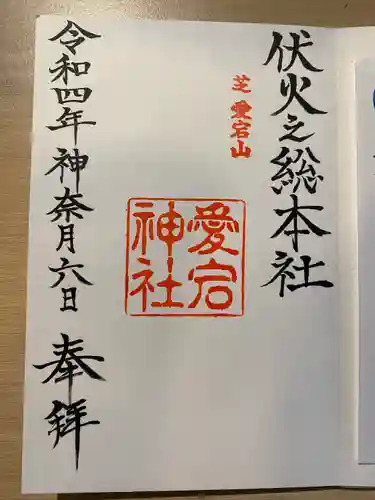 伏火之総本社
芝 愛宕山
愛宕神社
令和四年神奈月六日
奉拝